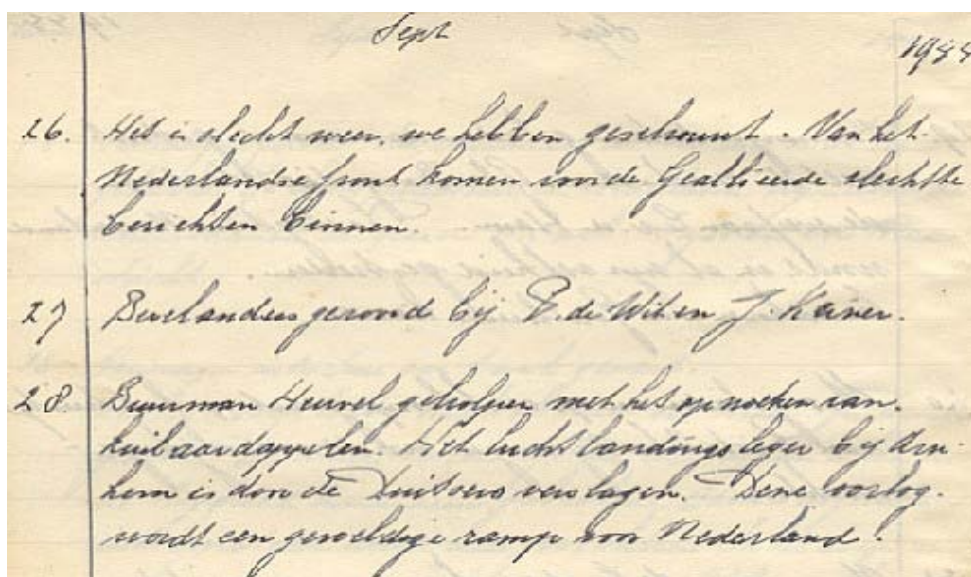 Sept
1944
26. Het is slecht weer, we hebben geschuurt. Van het
Nederlandse front komen voor de Geallieerde slechte
berichten binnen.
27 gerooid bij P. de Wit en J.
28 Buurman Heuvel geholpen met het opzoeken van
kuilaardappelen. Het luchtlandingsleger bij Arn-
hem is door de Duitsers verslagen. Deze oorlog
wordt een geweldige ramp voor Nederland.